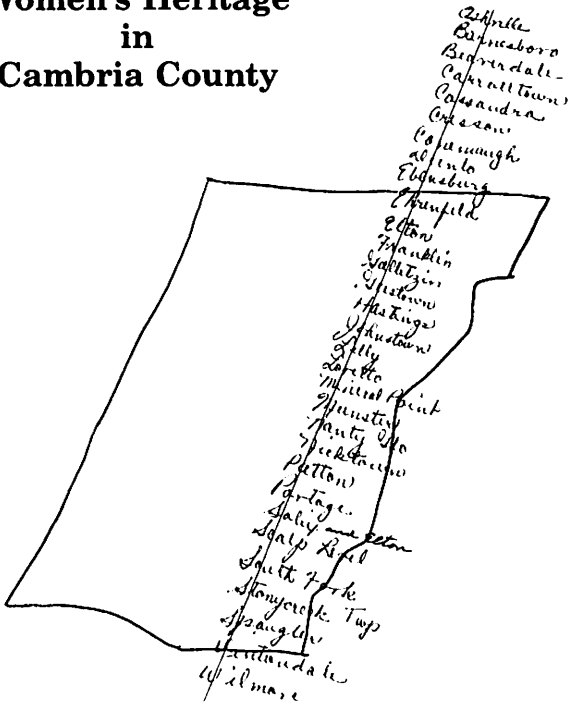 Women's Heritage
in
Cambria County
Ashville
Barnesboro
Beaverdale
Carrolltown
Cassandra
Cresson
Conemaugh
Ebensburg
Ehrenfeld
Elton
Franklin
Gallitzin
Geistown
Hastings
Johnstown
Lilly
Loretto
Mineral Point
Munster
Nanty Glo
Nicktown
Patton
Portage
Salix and Elton
Scalp Level
South Fork
Stonycreek Twp
Spangler
Vintondale
Wilmore